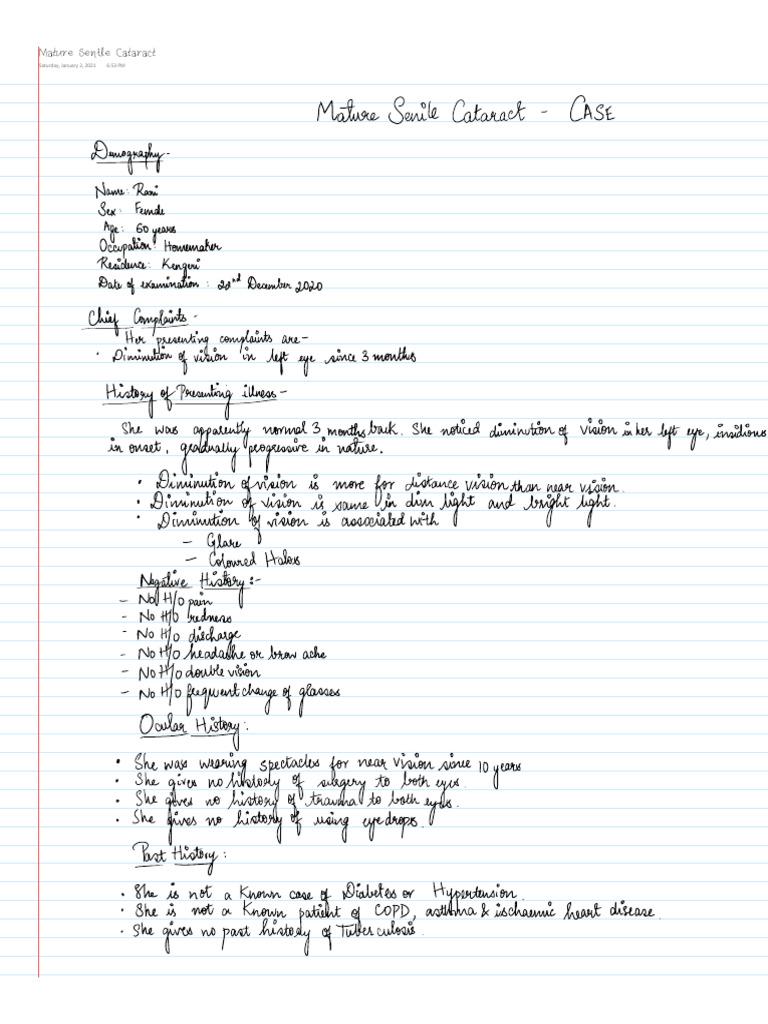 Mature Senile Cataract
Saturday, January 2, 2021 6:53 PM
Mature Senile Cataract - CASE
Demography -
Name: Rani
Sex: Female
Age: 60 years
Occupation: Homemaker
Residence: Kengeri
Date of examination : 22nd December 2020
Chief Complaints -
Her presenting complaints are -
· Diminution of vision in left eye since 3 months
History of Presenting illness -
She was apparently normal 3 months back. She noticed diminution of vision in her left eye, insidious
in onset, gradually progressive in nature.
· Diminution of vision is more for distance vision than near vision.
· Diminution of vision is same in dim light and bright light.
· Diminution of vision is associated with
- Glare
- Coloured Haloes
Negative History :-
- No H/O pain
- No H/O redness
- No H/O discharge
- No H/O headache or brow ache
- No H/O double vision
- No H/O frequent change of glasses
Ocular History :
· She was wearing spectacles for near vision since 10 years
· She gives no history of surgery to both eyes.
· She gives no history of trauma to both eyes.
· She gives no history of using eyedrops.
Past History :
· She is not a known case of Diabetes or Hypertension.
· She is not a known patient of COPD, asthma & ischaemic heart disease.
· She gives no past history of Tuberculosis.